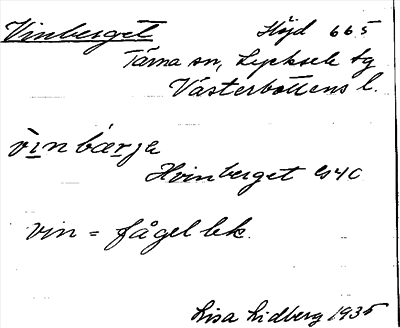 Vinberget Höjd 665
Tärna sn, Lycksele tg
Västerbottens l.
vìnbærja
Hvinberget GS4C
vin = fågel lek.
Lisa Lidberg 1935